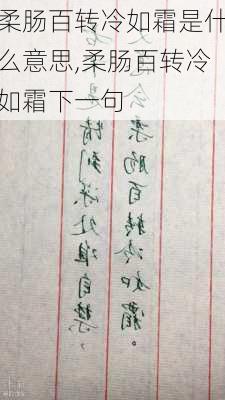 柔肠百转冷如霜是什
么意思,柔肠百转冷
如霜下一句
是情到深处难自禁，
会柔肠百转冷如霜。